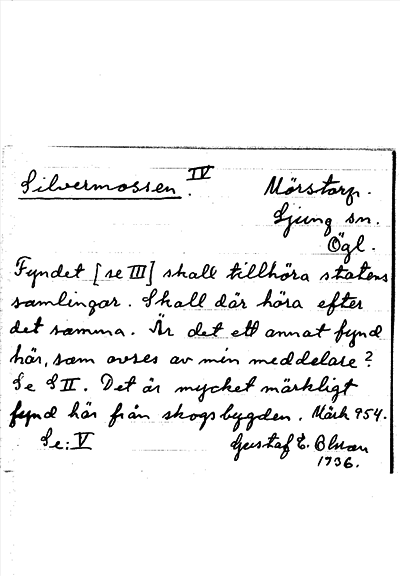 Silvermossen. IV
Mörstorp.
Ljung sn.
Ögl.
Fyndet [se III] skall tillhöra statens
samlingar. Skall där höra efter
det samma. Är det ett annat fynd
här, som avses av min meddelare?
Se S II. Det är mycket märkligt
fynd här från skogsbygden. Märk 954.
Se: V
Gustaf E. Blman
1936.